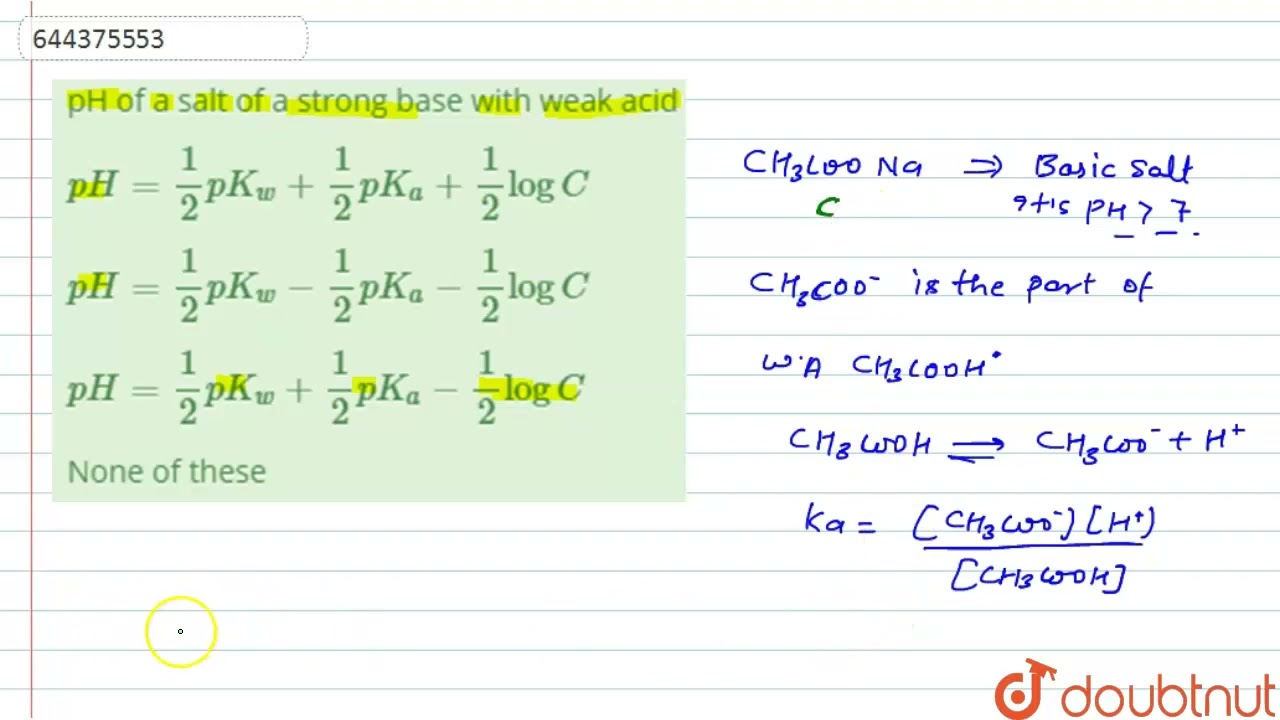 644375553
pH of a salt of a strong base with weak acid
pH = 1/2 pK_w + 1/2 pK_a + 1/2 log C
pH = 1/2 pK_w − 1/2 pK_a − 1/2 log C
pH = 1/2 pK_w + 1/2 pK_a − 1/2 log C
None of these
CH₃COO Na ⇒ Basic Salt
C
9+is PH > 7.
CH₃COO⁻ is the part of
W.A CH₃COOH
CH₃COOH ⇌ CH₃COO⁻ + H⁺
Ka = [CH₃COO⁻] [H⁺]
[CH₃COOH]
doubtnut